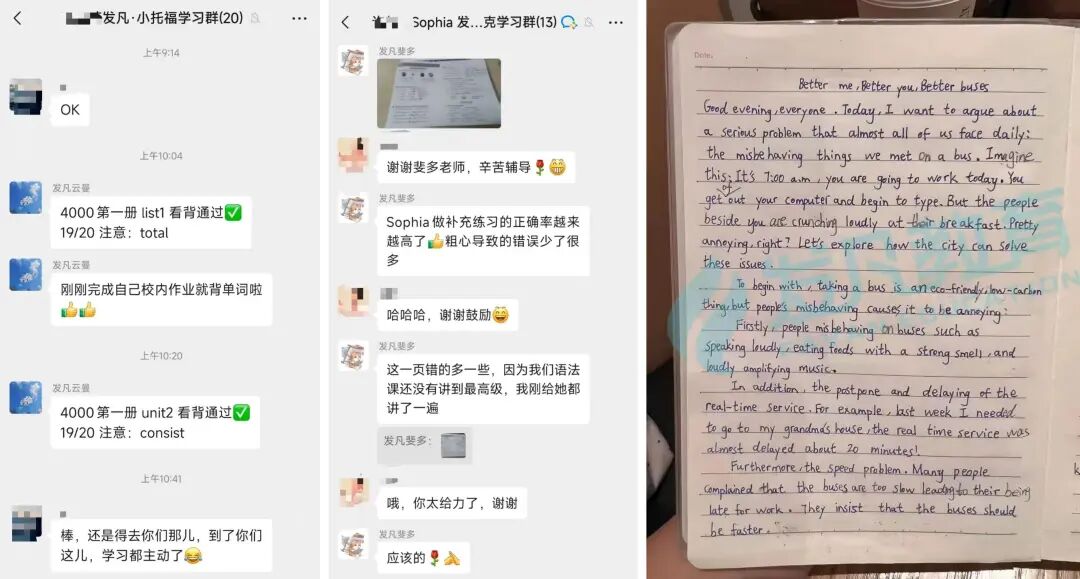 发凡·小托福学习群(20)
上午9:14
OK
上午10:04
发凡云曼
4000第一册 list1 看背通过✅
19/20 注意：total
发凡云曼
刚刚完成自己校内作业就背单词啦
👍👍
上午10:20
发凡云曼
4000第一册 unit2 看背通过✅
19/20 注意：consist
上午10:41
棒，还是得去你们那儿，到了你们
这儿，学习都主动了😂
Sophia 发...克学习群(13)
发凡斐多
谢谢斐多老师，辛苦辅导🌹😁
发凡斐多
Sophia做补充练习的正确率越来
越高了👍粗心导致的错误少了很
多
哈哈哈，谢谢鼓励😄
发凡斐多
这一页错的多一些，因为我们语法
课还没有讲到最高级，我刚给她都
讲了一遍
发凡斐多：
哦，你太给力了，谢谢
发凡斐多
应该的🌹🙏
Date.
Better me, Better you, Better buses
Good evening, everyone. Today, I want to argue about
a serious problem that almost all of us face daily:
the misbehaving things we met on a bus. Imagine
this: It's 7:00 a.m, you are going to work today. You
get out your computer and begin to type. But the people
beside you are crunching loudly at their breakfast. Pretty
annoying, right? Let's explore how the city can solve
these issues.
To begin with, taking a bus is an eco-friendly, low-carbon
thing, but people's misbehaving causes it to be annoying:
Firstly, people misbehaving on buses such as
speaking loudly, eating foods with a strong smell, and
loudly amplifying music.
In addition, the postpone and delaying of the
real-time service. For example, last week I needed
to go to my grandma's house, the real time service was
almost delayed about 20 minutes!
Furthermore, the speed problem. Many people
complained that the buses are too slow leading to their being
late for work. They insist that the buses should
be faster.